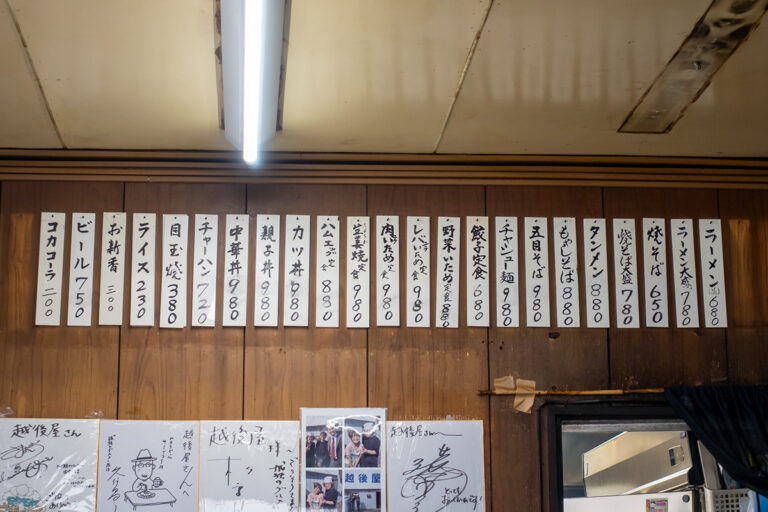 ラーメン 680
ラーメン大盛 780
焼そば 650
焼そば大盛 780
タンメン 880
もやしそば 880
五目そば 980
チャーシュー麺 980
餃子定食 680
野菜いため定食 880
レバいため定食 980
肉いため定食 980
生姜焼定食 980
ハムエッグ定食 880
カツ丼 980
親子丼 980
中華丼 980
チャーハン 720
目玉焼 380
ライス 230
お新香 300
ビール 750
コカコーラ 200
越後屋さん
越後屋さんへ
越後屋
様
越後屋
越後屋さん